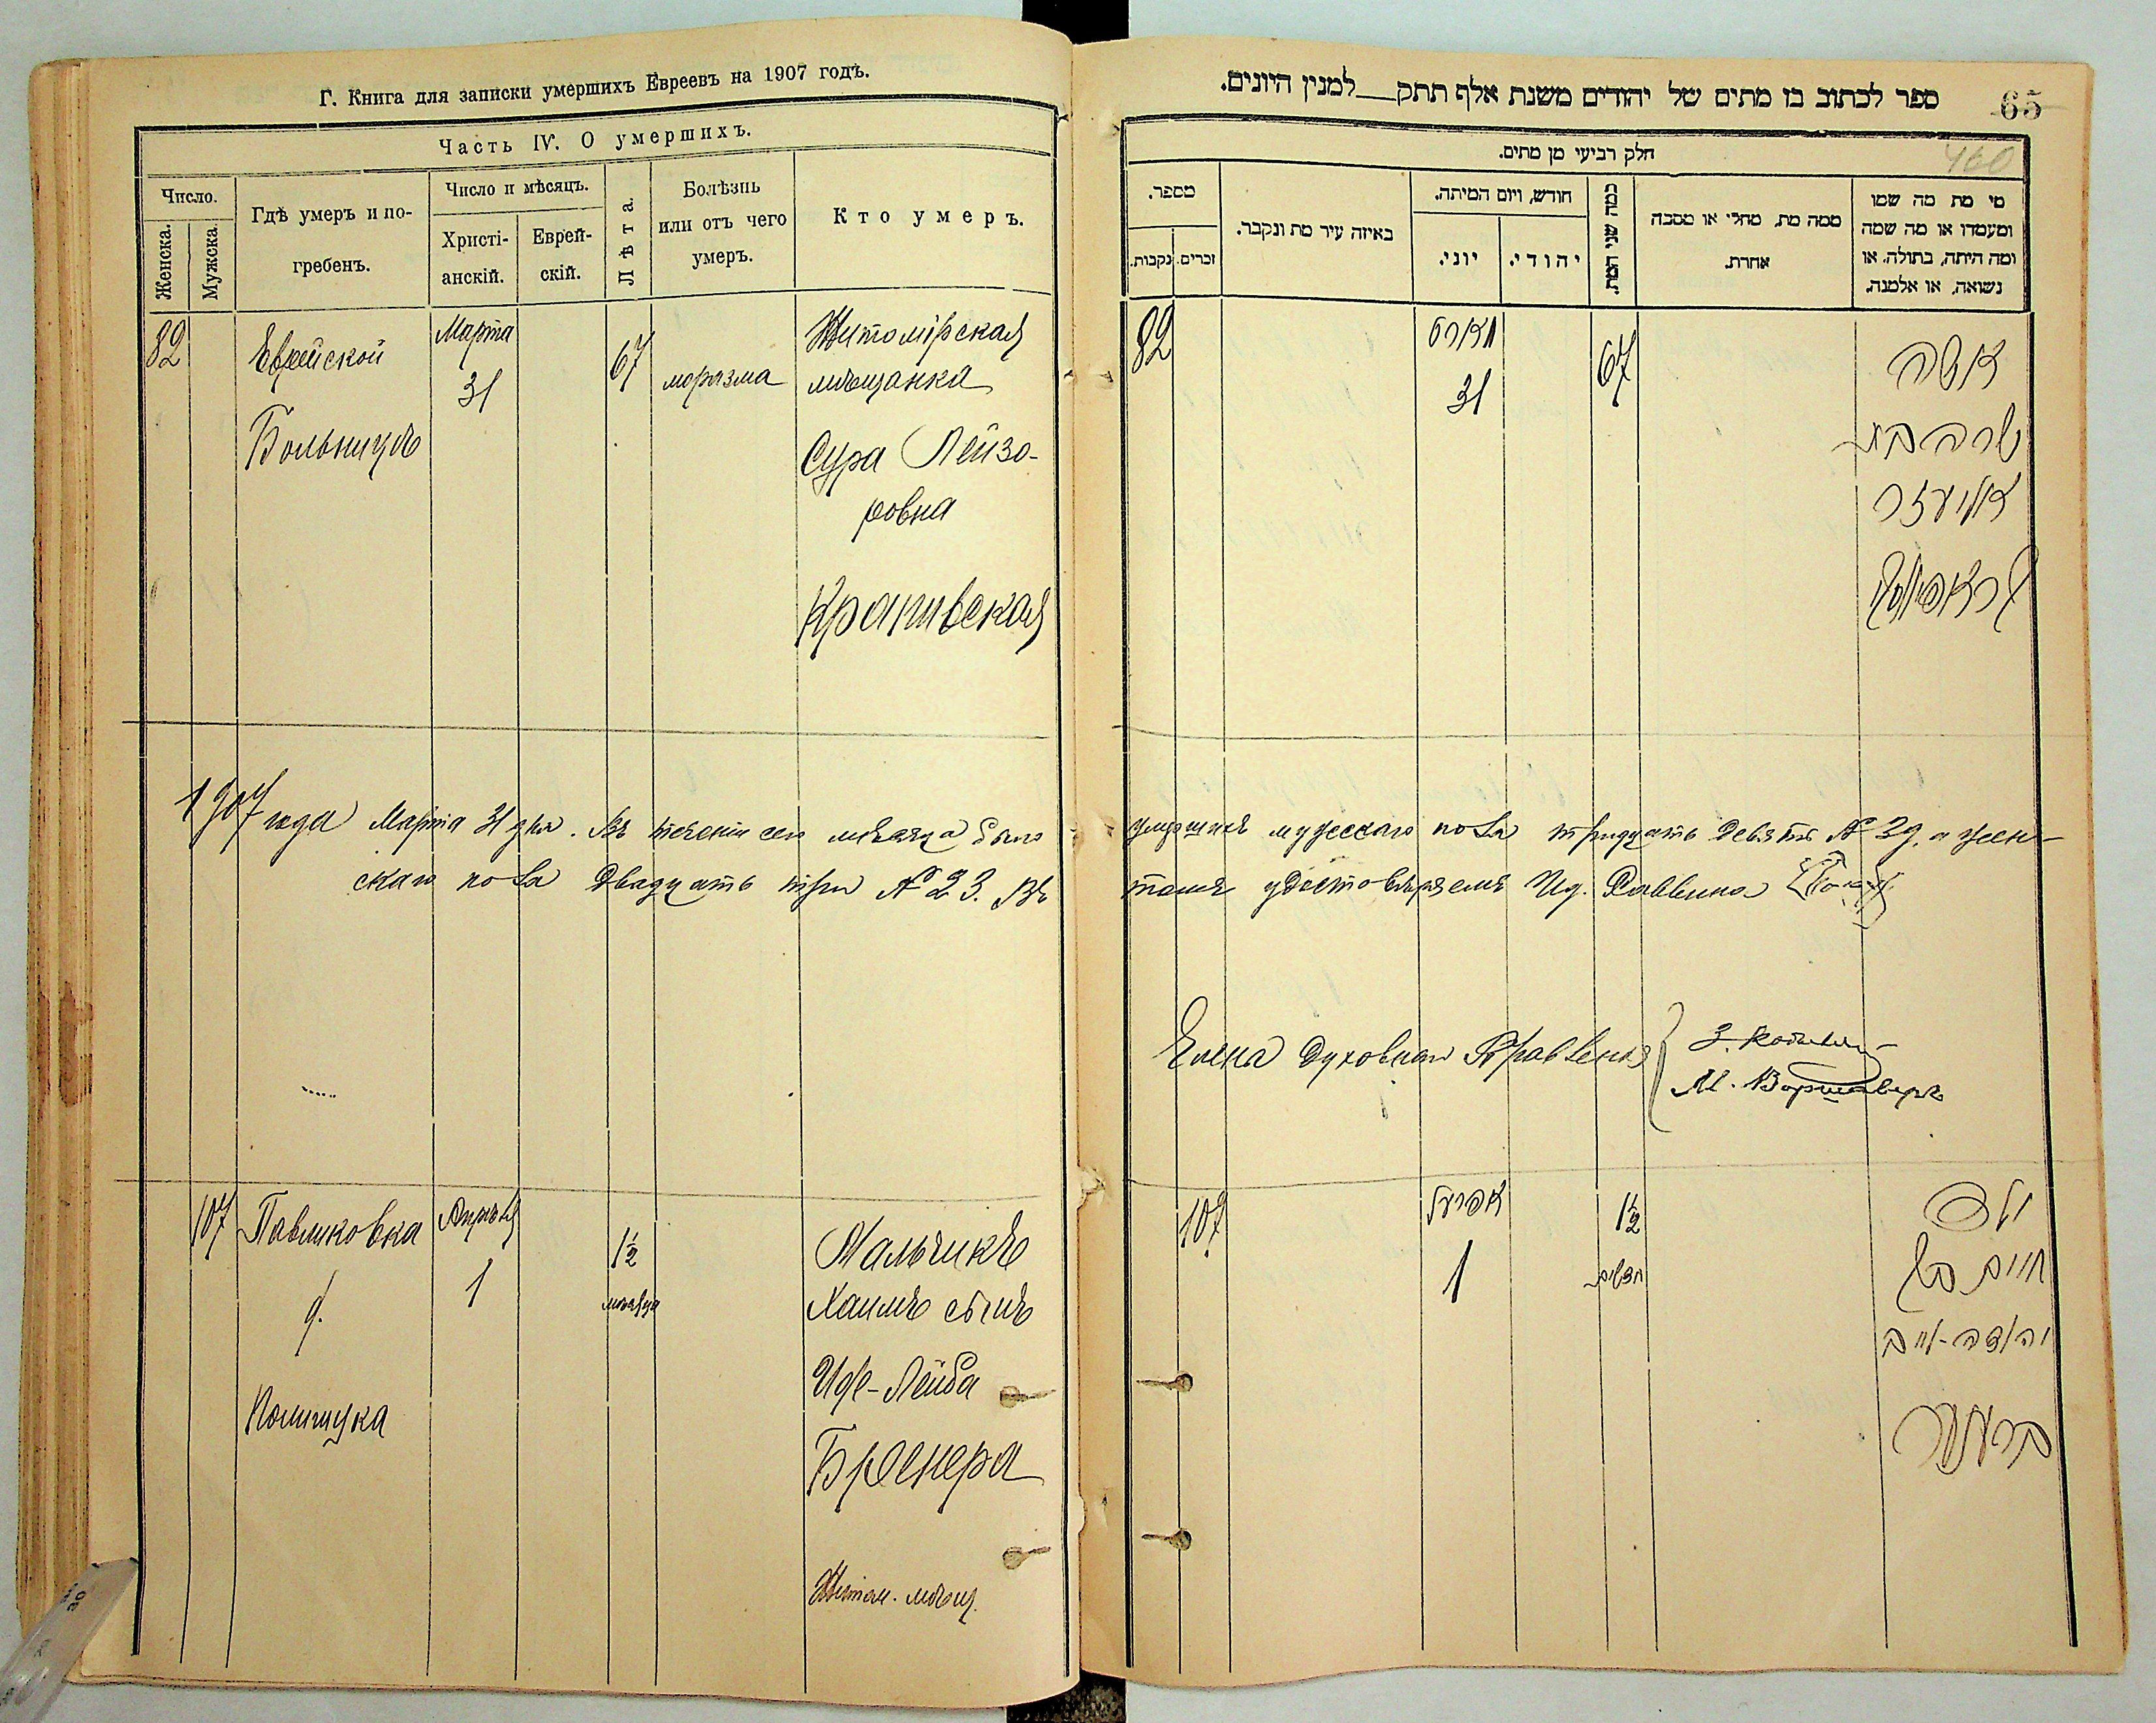 Г. Книга для записки умершихъ Евреевъ на 1907 годъ.
Часть IV. О умершихъ.
Число.
Женска.
Мужска.
Гдѣ умеръ и по-
гребенъ.
Число и мѣсяцъ.
Христі-
анскій.
Еврей-
скій.
Лѣта.
Болѣзнь
или отъ чего
умеръ.
Кто умеръ.
82
Еврейской
Больницѣ
Марта
31
67
моразма
Житомірская
мѣщанка
Сура Лейзо-
ровна
Крапивская
1907 года Марта 31 дня. Въ теченіи сего мѣсяца было
скаго пола двадцать три № 23. Въ
107
Павликовка
д.
Полищука
Апрѣля
1
1½
мѣсяца
Мальчикъ
Хаимъ сынъ
Иде-Лейба
Бренера
Житом. мѣщ.
ספר לכתוב בו מתים של יהודים משנת אלף תתק__למנין היונים.
65
460
חלק רביעי מן מתים.
מספר.
זכרים.
נקבות.
באיזה עיר מת ונקבר.
חודש, ויום המיתה.
יוני.
יהודי.
כמה שני המת.
ממה מת, מחלי או מסבה
אחרת.
מי מת מה שמו
ומעמדו או מה שמה
ומה היתה, בתולה, או
נשואה, או אלמנה.
82
מארט
31
67
אשה
שרה בת
אליעזר
קראפיווסקי
умершихъ мужескаго пола тридцать девять № 39, а жен-
томъ удостовѣряемъ И. д. Раввина
Члены Духовнаго Правленія
М. Воршаверъ
107
אפריעל
1
1½
חדשים
ילד
חיים בן
יהודה-ליב
ברענער